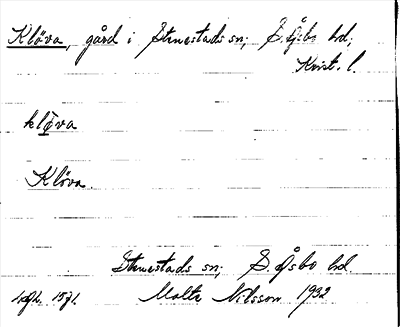 Klöva, gård i Stenestads sn; S. Åsbo hd;
Krist. l.
klöva
Klöva.
Stenestads sn; S. Åsbo hd.
Malte Nilsson 1932